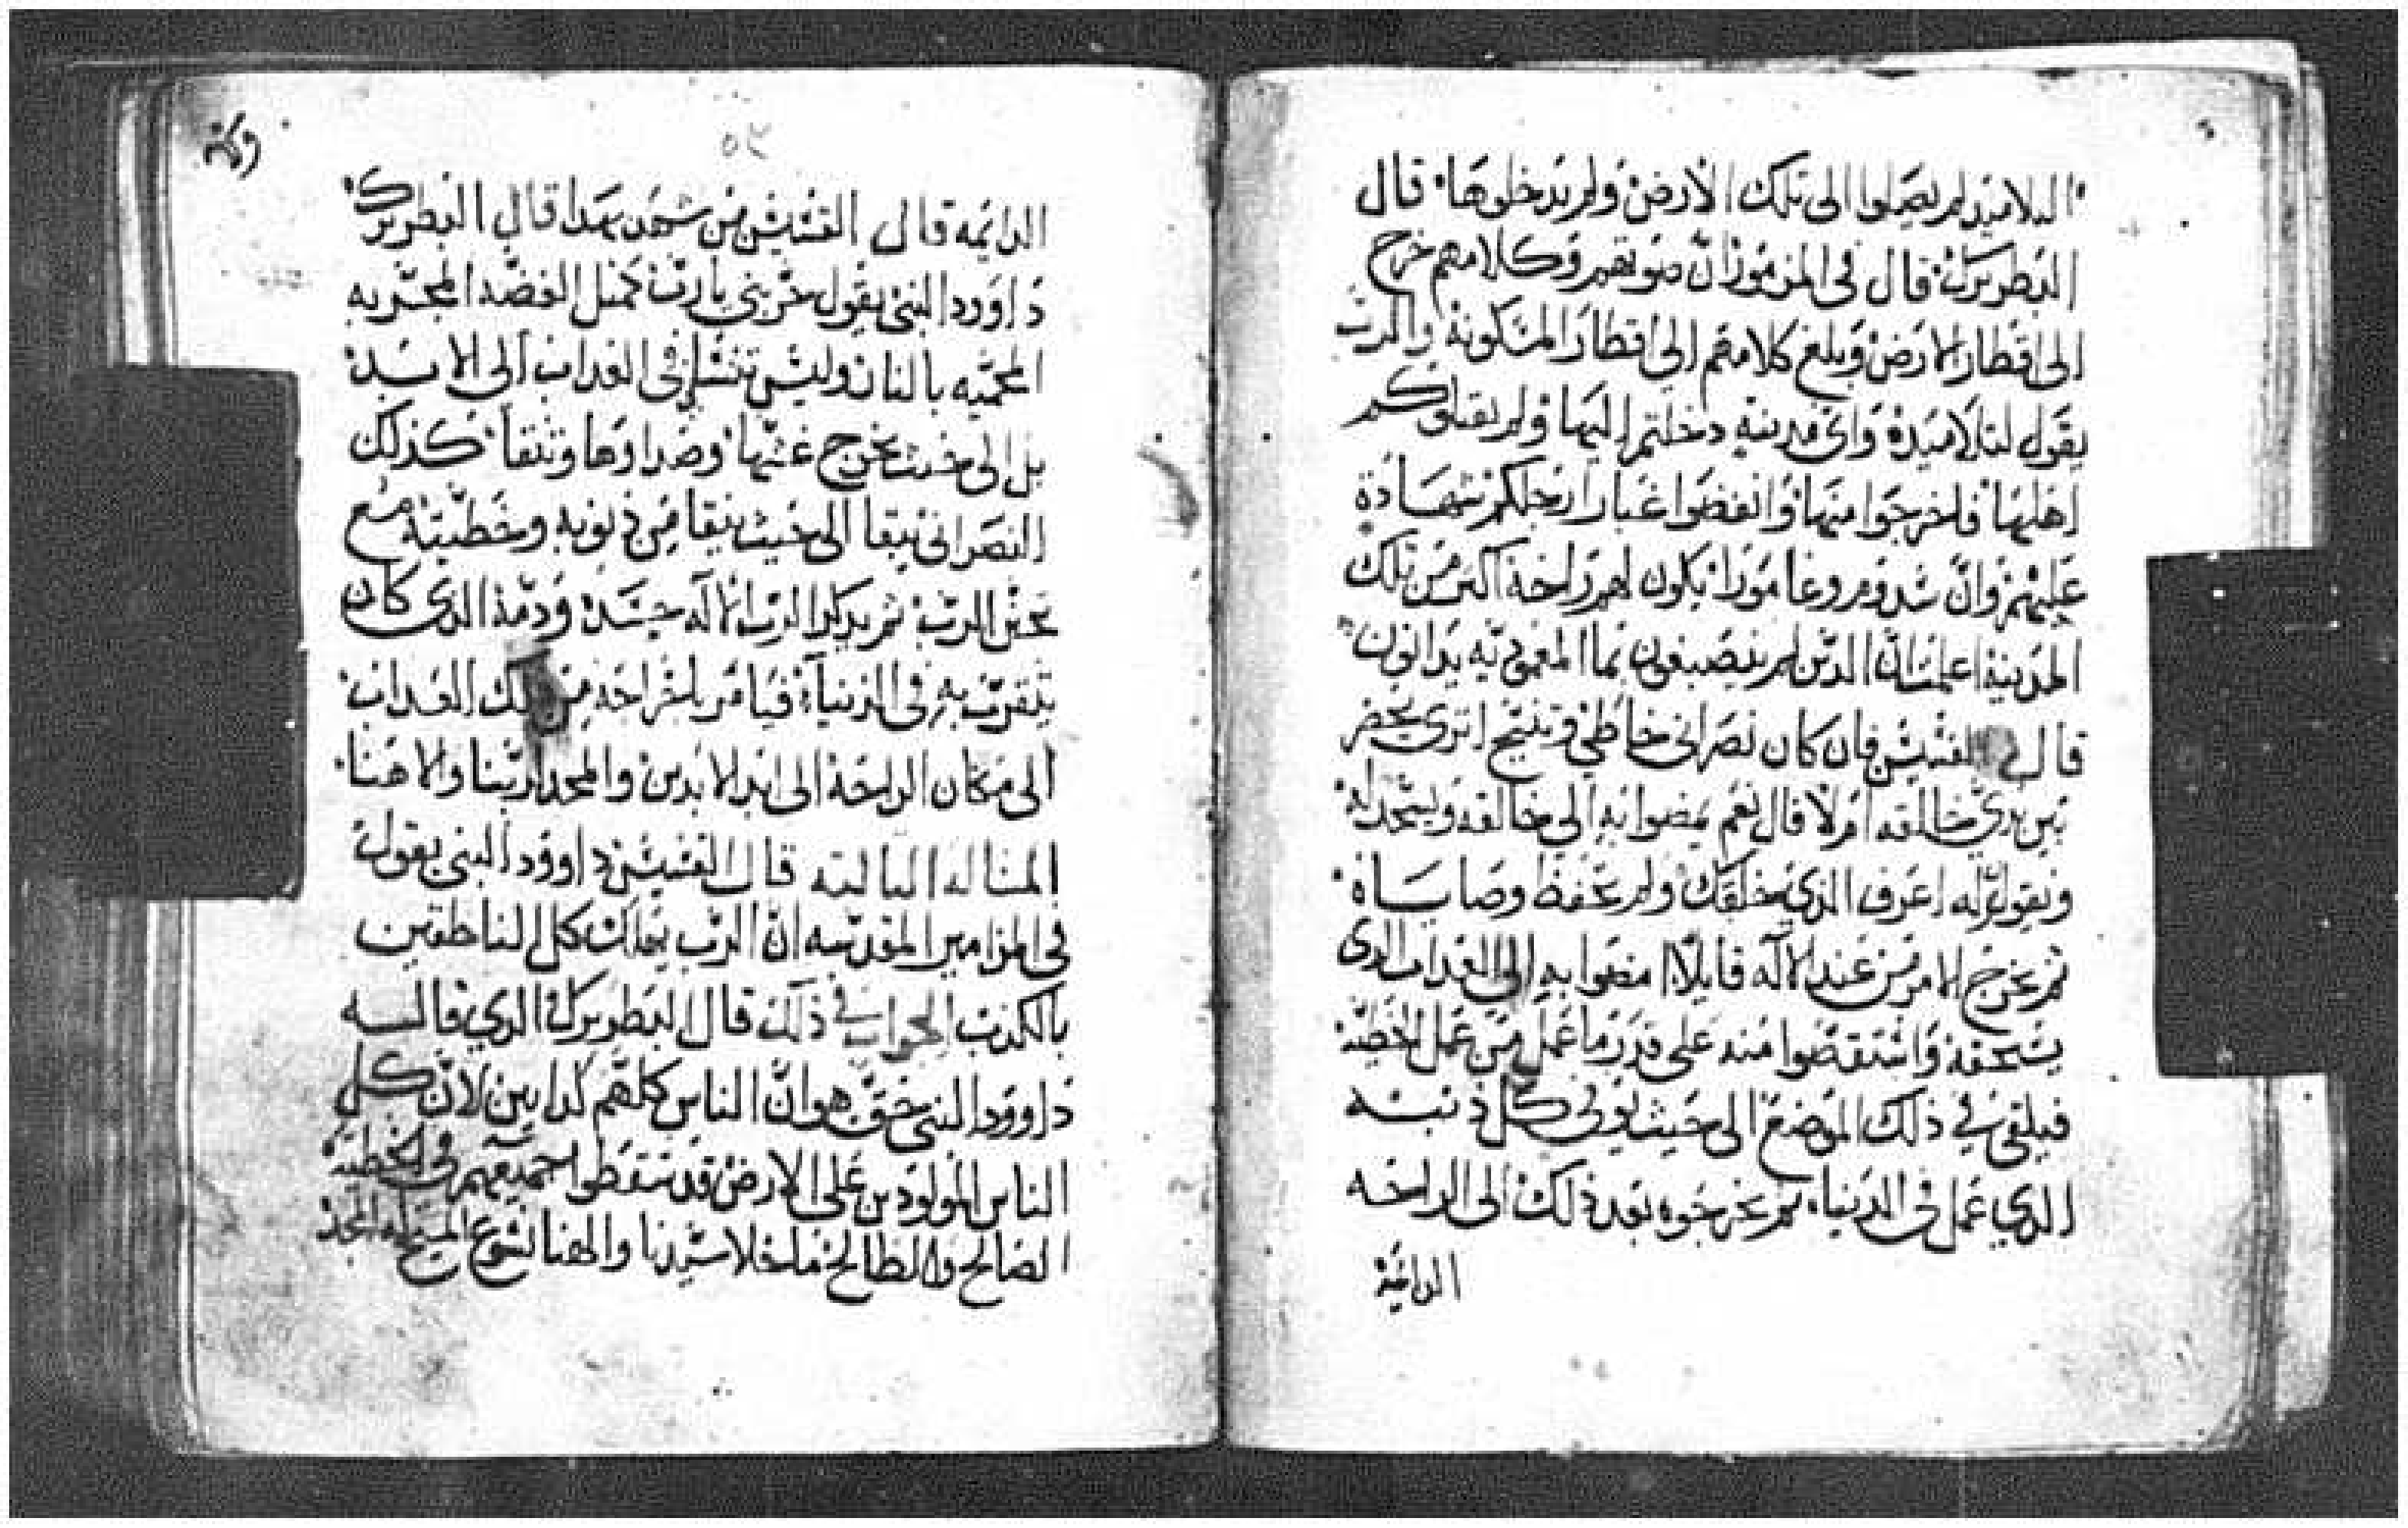 التلاميذ لم يصلوا الى تلك الارض ولم يدخلوها قال
البطريرك قال فى المزمور ان صوتهم وكلامهم خرج
الى اقطار الارض وبلغ كلامهم الى اقطار المسكونة والرب
يقول لتلاميذه واى مدينه دخلتم اليها ولم يقبلوكم
اهلها فاخرجوا منها وانفضوا غبار ارجلكم شهادة
عليهم وان سدوم وعامورا يكون لهم راحة اكثر من تلك
المدينة اعلمت ان الدين لم ينصبغون بما المعموديه يدانون
قال القسيس فان كان نصرانى خاطي وتنيح اترى يحضر
بين يدي خالقه ام لا قال نعم يمضوا به الى خالقه ويسجد له
ويقول له اعرف الذي خلقك ولم تحفظ وصاياه
ثم يخرج الامر من عند الاله قايلا امضوا به الى العداب الدى
يستحقه واستقضوا منه على قدر ما عمل من عمل الخطية
فيلقى في ذلك الموضع الى حيث يوفى كل ذنبه
الذي عمل فى الدنيا ثم يخرجوه بعد ذلك الى الراحه
الدايمة
٥٢
الدايمه قال القسيس من شهد بهدا قال البطريرك
داوود النبى يقول جربني يا رب كمثل الفضه المجربه
المحميه بالنار وليس تنسا فى العداب الى الابد
بل الى حيث يخرج غشها وصداوها وتنقا كذلك
النصرانى يبقا الى حيث ينقا من ذنوبه وخطيته مع
تحنن الرب ثم يدكر الرب الاله جسده ودمه الدى كان
يتقرب به فى الدنيا فيامر باخراجه من تلك العداب
الى مكان الراحة الى ابد الابدين والمجد لربنا والاهنا
المساله التالته قال القسيس داوود النبى يقول
فى المزامير المقدسه ان الرب يهلك كل الناطقين
بالكذب الجواب في ذلك قال البطريرك الدي قاله
داوود النبى حق هو ان الناس كلهم كدابين لان كل
الناس المولودين على الارض قد سقطوا جميعهم فى الخطية
الصالح والطالح ما خلا سيدنا والهنا يسوع المسيح له المجد